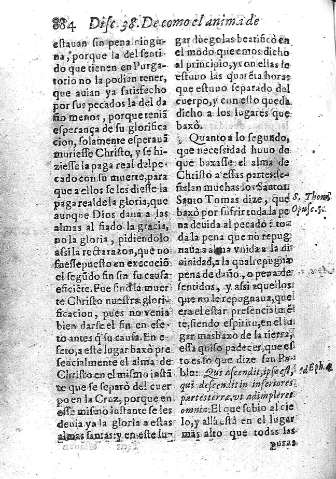 884 Disc. 38. De como el anima de
estauan sin pena ningu-
na, porque la del senti-
do que tienen en Purga-
torio no la podian tener,
que auian ya satisfecho
por sus pecados la del da
ño menos, porque teniã
esperança de su glorifica
cion, solamente esperauã
muriesse Christo, y se hi-
ziesse la paga real del pe-
cado con su muerte, para
que a ellos se les diesse la
paga real de la gloria, que
aunque Dios dana a las
almas al fiado la gracia,
no la gloria, pidiendolo
assi la recta razon, que no
fuesse puesto en execuciõ
el segũdo fin sin su causa
eficiẽte. Fue fin d la muer
te Christo nuestra glori-
ficacion, pues no venia
bien darse el fin en efe-
to antes q̃ su causa. En e-
feto, a este lugar baxò pre
sencialmente el alma de
Christo en el mismo instã
te que se separò del cuer
po en la Cruz, porque en
esse mismo instante se les
deuia ya la gloria a estas
almas santas: y en este lu-
gar dũ̃egolas beatificò en
el modo que emos dicho
al principio, y con ellas se
estuuo las quarẽta horas
que estuuo separado del
cuerpo, y con esto queda
dicho a los lugares que
baxò.
Quanto a lo segundo,
que necessidad huuo de
que baxasse el alma de
Christo a essas partes, se-
ñalan muchas los Santos.
Santo Tomas dize, que
baxò por sufrir toda la pe
na deuida al pecado, è to-
da la pena que no repug-
naua a alma vnida a la di
uinidad, a la qual repugna
pena de daño, o pena de
sentidos, y assi aquellos
que no le repugnaua, que
era el estar presencialmẽ
te, siendo espiritu, en el lu
gar mas baxo de la tierra,
esta quiso padecer, que es
to es lo que dize san Pa-
blo: Qui ascendit, ipse est,
qui descendit in inferiores
partes terræ, vt adimpleret
omnia. El que subio al cie
lo, y allà està en el lugar
mas alto que todas las
puras
S. Thom.
Opusc.
ad Eph. 4.